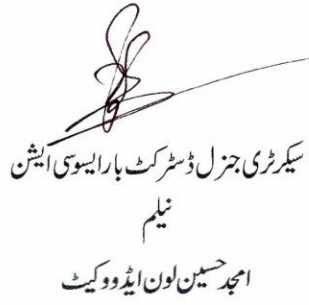 سیکرٹری جنرل ڈسٹرکٹ بار ایسوسی ایشن
نیلم
امجد حسین لون ایڈووکیٹ